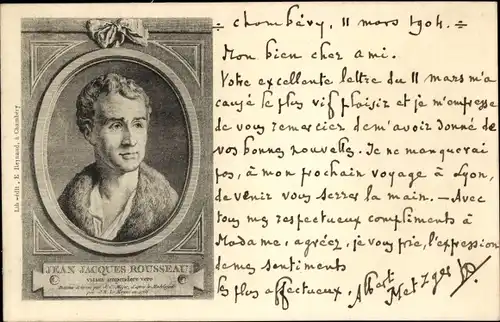 Lib.-édit., E. Reynaud, à Chambéry
JEAN JACQUES ROUSSEAU
VITAM IMPENDERE VERO
÷ Chambéry, 11 mars 1904. ÷
Mon bien cher ami.
Votre excellente lettre du 11 mars m'a
causé le plus vif plaisir et je m'empresse
de vous remercier de m'avoir donné de
vos bonnes nouvelles. Je ne manquerai
pas, à mon prochain voyage à Lyon,
de venir vous serrer la main. — Avec
tous mes respectueux compliments à
Madame, agréez, je vous prie, l'expression
de mes sentiments
les plus affectueux. Albert
Metzger